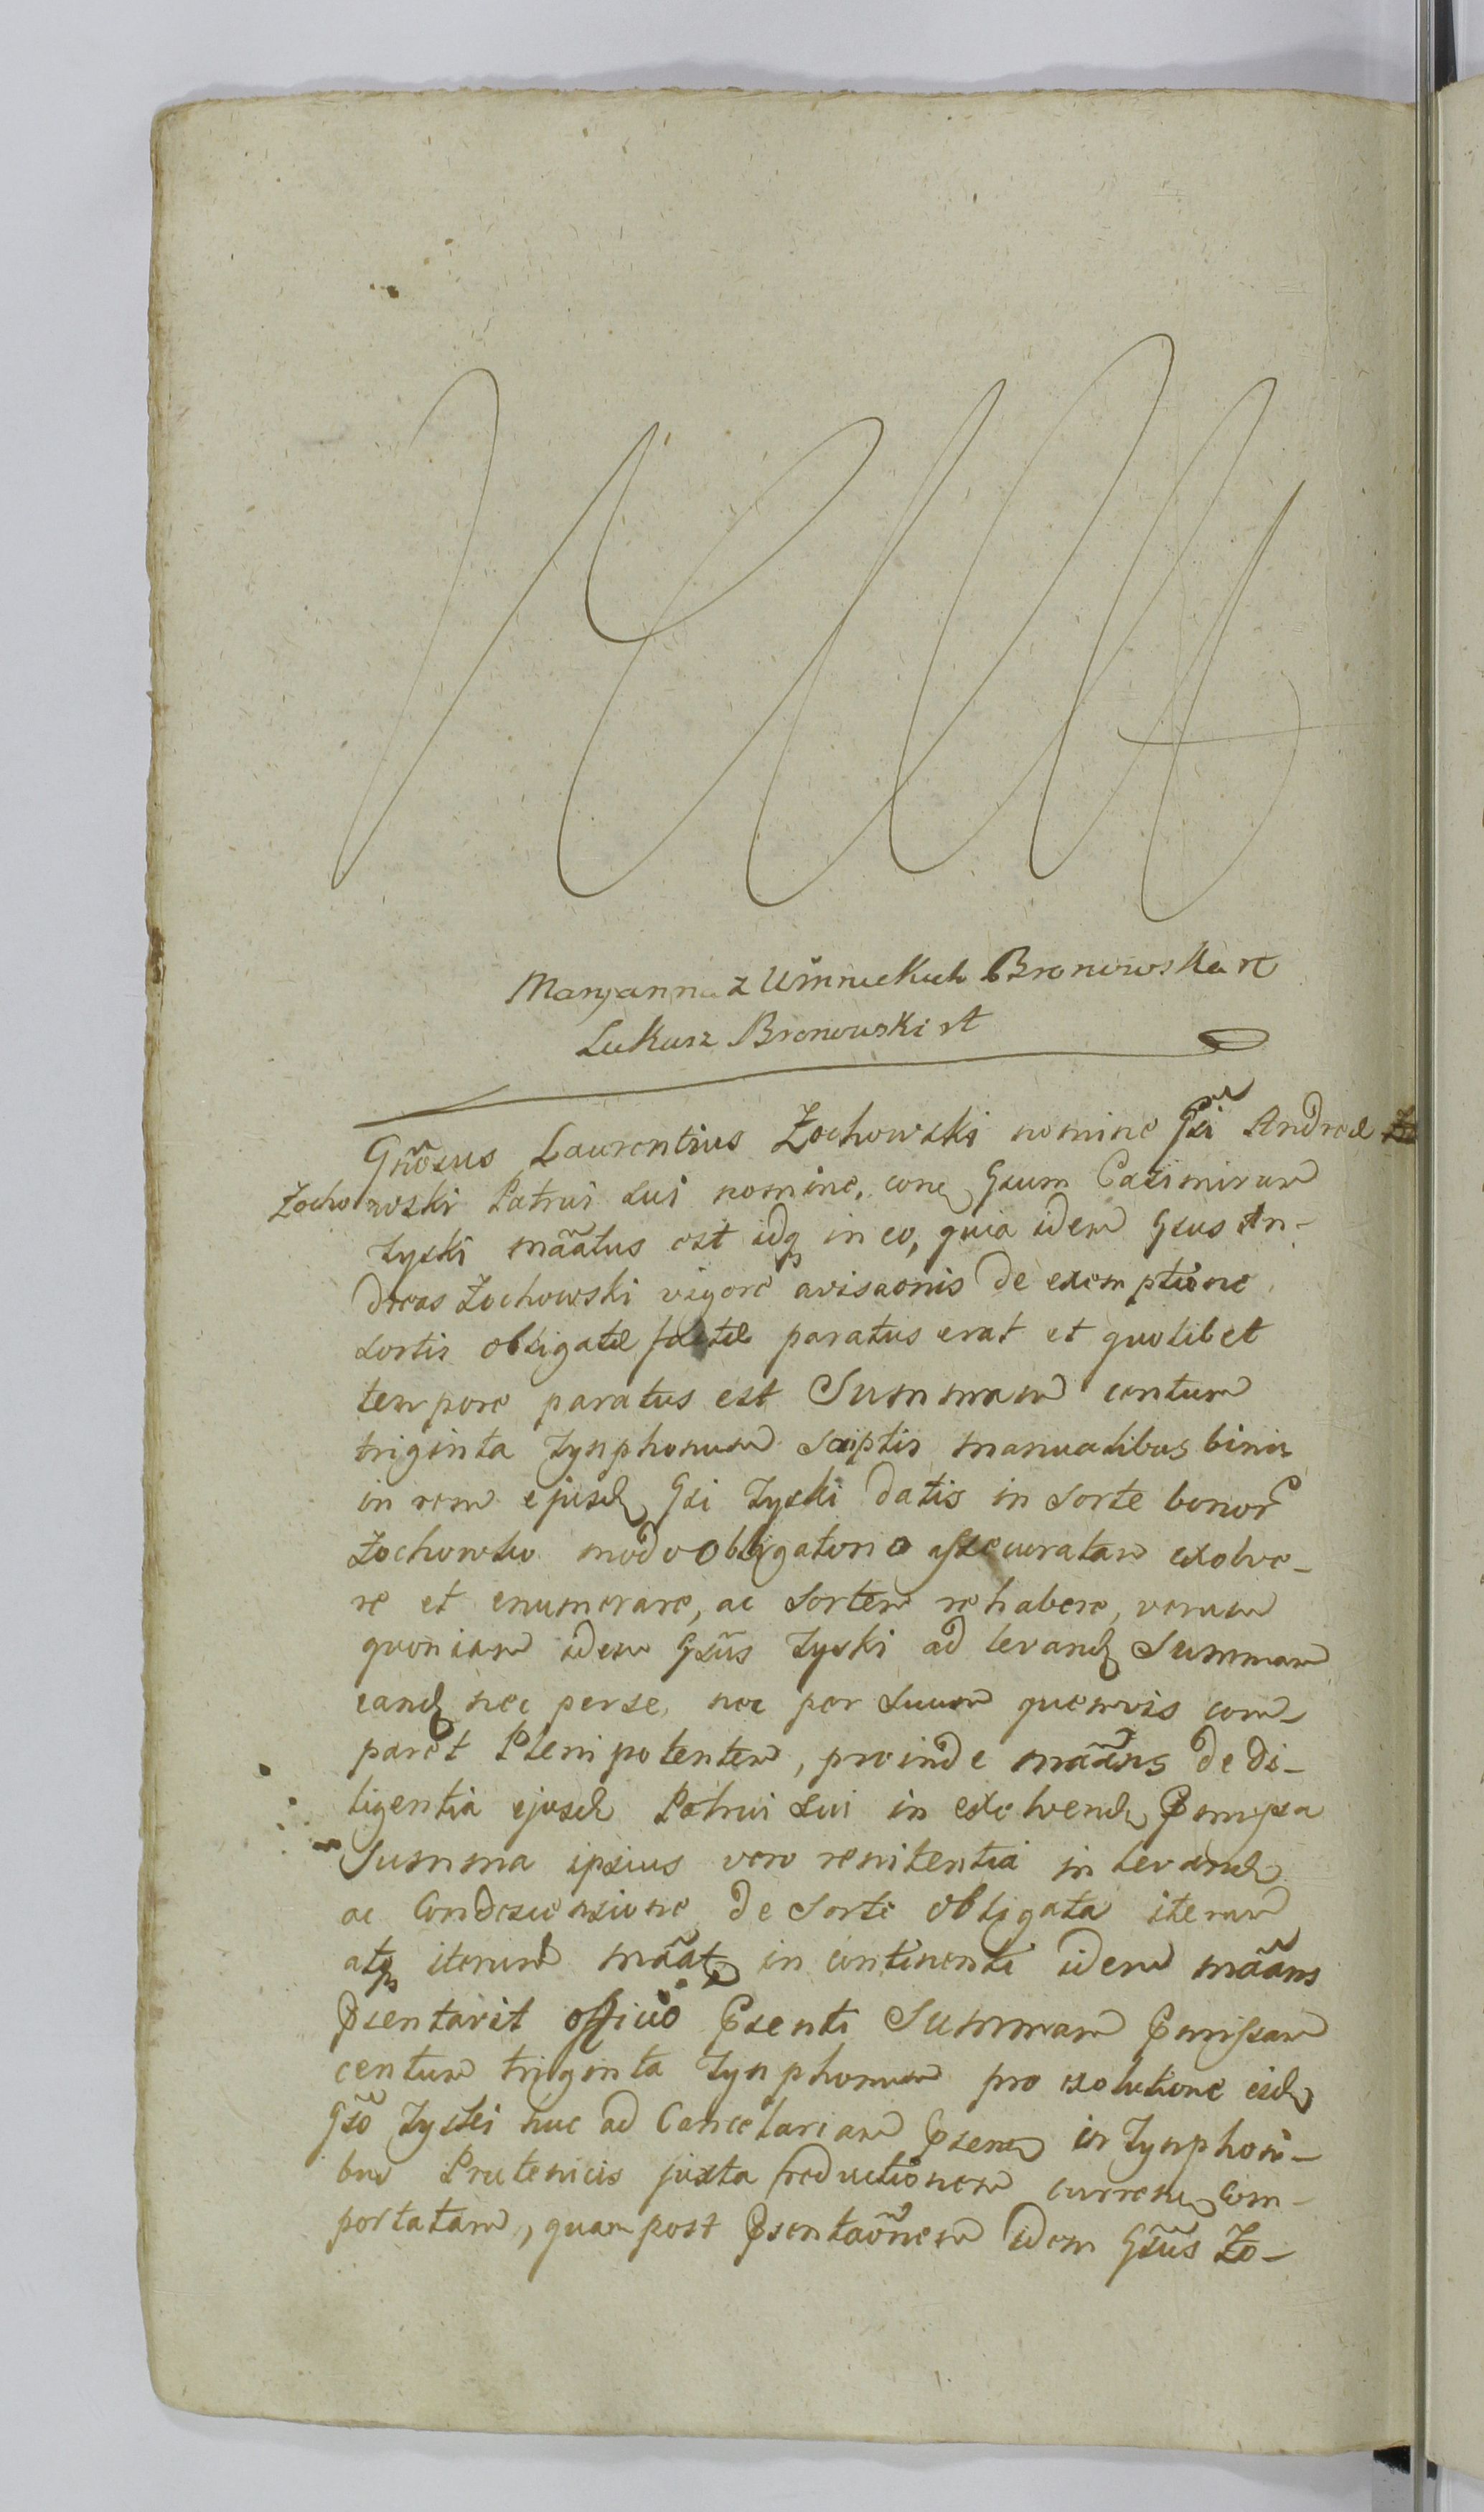 Maryanna z Winnickich Bronowska rt
Lukasz Bronowski rt
Gnõsus Laurentius Zochowski nomine Gsi Andreæ
Zochowski Patrui sui nomine, conq Gsum Casimirum
Zyski mãatus est idq in eo, quia idem Gsus An-
dreas Zochowski vigore avisaonis de exemptione
sortis obligatæ factæ paratus erat et quolibet
tempore paratus est Summam centum
triginta Tynphonum scriptis manualibus binis
in rem ejusd Gsi Zyski datis in sorte bonor
Zochowko modo obligatorio assecuratam exolve-
re et enumerare, ac sortem rehabere, verum
quoniam idem Gsũs Zyski ad levand Summam
eand nec per se, nec per suum quemvis com-
paret Plenipotentem, proinde mããns de di-
ligentia ejusd Patrui sui in exolvend Pmissa
Summa ipsius vero renitentia in levand
ac Condescensione de sorte obligata iterum
atq iterum mãat in continenti idem mããns
Psentavit officio Psenti Summam Pmissam
centum triginta Tynphonum pro exolutione eid
Gsõ Zyski huc ad Cancelariam Psenq in Tynphoni-
bus Prutenicis juxta reductionem currenq Com-
portatam, quam post Psentaõnem idem Gsũs Zo-